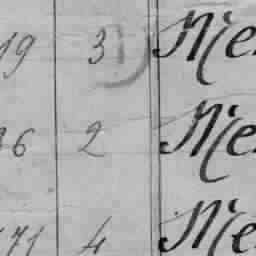 19 3 Me
36 2 Me
71 4 Me